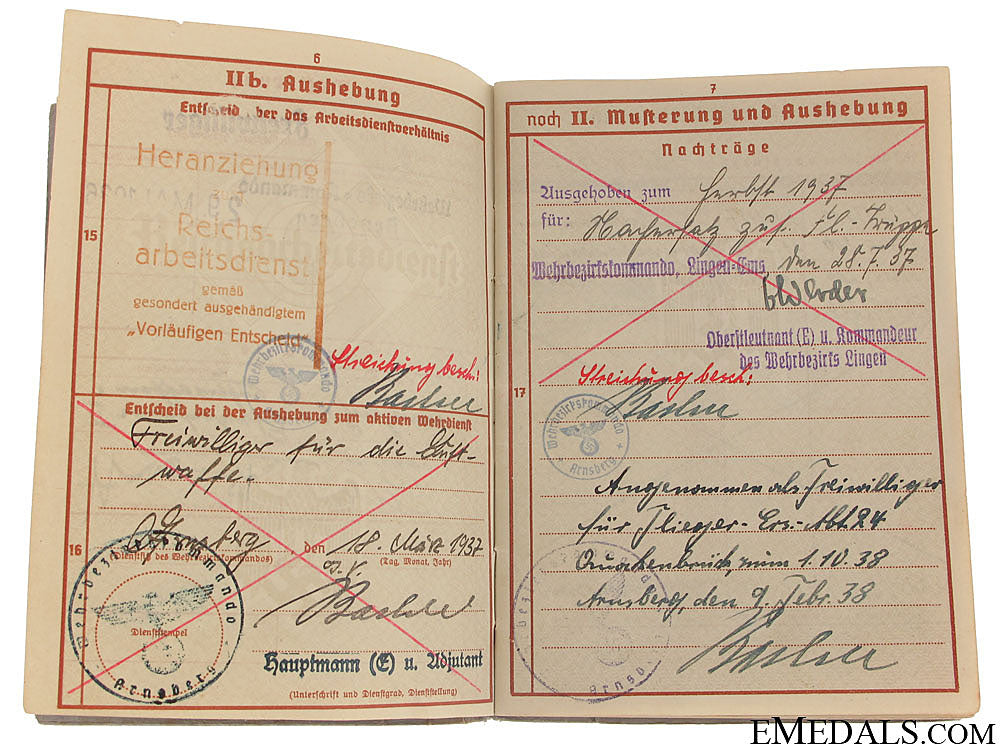 6
IIb. Aushebung
Entscheid ber das Arbeitsdienstverhältnis
Heranziehung
z.
Reichs-
arbeitsdienst
gemäß
gesondert ausgehändigtem
„Vorläufigen Entscheid“
15
Wehrbezirkskommando
Streichung besch:
Entscheid bei der Aushebung zum aktiven Wehrdienst
Freiwilliger für die Luft-
waffe.
16
Arnsberg, den 18. März 1937
(Dienstsitz des Wehrbezirkskommandos) (Tag, Monat, Jahr)
J. V.
Wehrbezirkskommando
Dienststempel
Arnsberg
Hauptmann (E) u. Adjutant
(Unterschrift und Dienstgrad, Dienststellung)
7
noch II. Musterung und Aushebung
Nachträge
Ausgehoben zum Herbst 1937
für: zus. Fl.-Truppe
Wehrbezirkskommando, Lingen-Ems, den 28.7.37
Oberstleutnant (E) u. Kommandeur
des Wehrbezirks Lingen
Streichung besch:
17
Wehrbezirkskommando
Arnsberg
Angenommen als Freiwilliger
für Flieger-Ers.-Abt. 24
Quakenbrück, zum 1.10.38
Arnsberg, den 9. Febr. 38
EMEDALS.COM